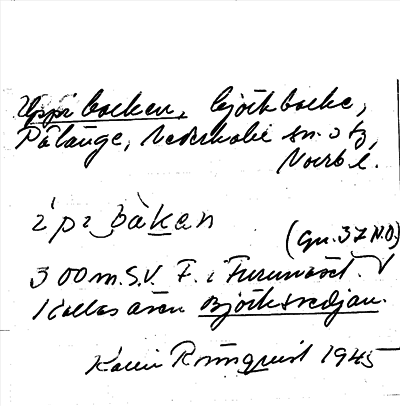 Uppi backen, björkbacke,
Pålänge, Nederkalix sn. o tg,
Norrb l.
ìpɪ bàkɛn
(Gn. 37 N.O.)
300 m. S.V. F. i Furunäset.
Kallas även Björksvedjan.
Karin Rönnquist 1945